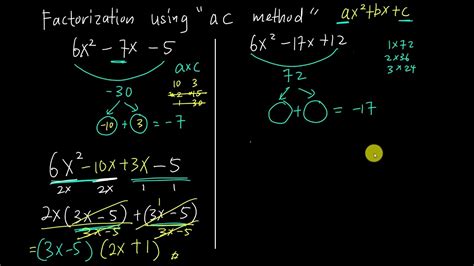 Factorization using "ac method" ax²+bx+c
6x² - 7x - 5
axc
-30
10 3
1 30
-10 + 3 = -7
6x² -10x +3x -5
2x 2x 1 1
2x(3x-5) +1(3x-5)
3x-5 3x-5
=(3x-5)(2x+1)
6x² -17x +12
72
+ = -17
1x72
2x36
3x24